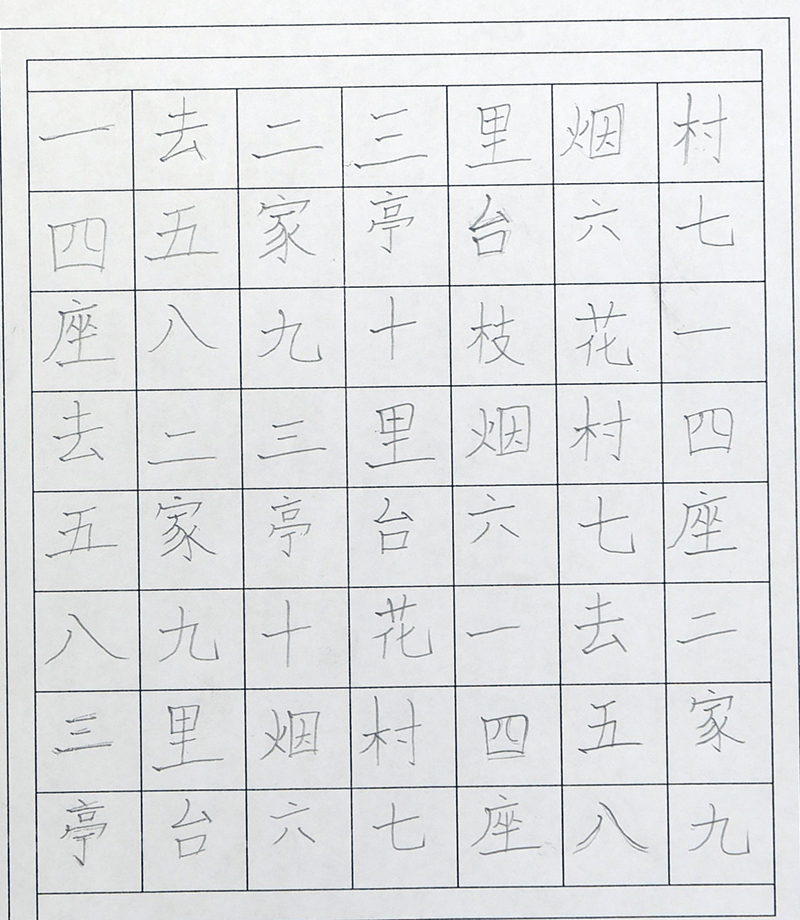 一去二三里烟村
四五家亭台六七
座八九十枝花一
去二三里烟村四
五家亭台六七座
八九十花一去二
三里烟村四五家
亭台六七座八九